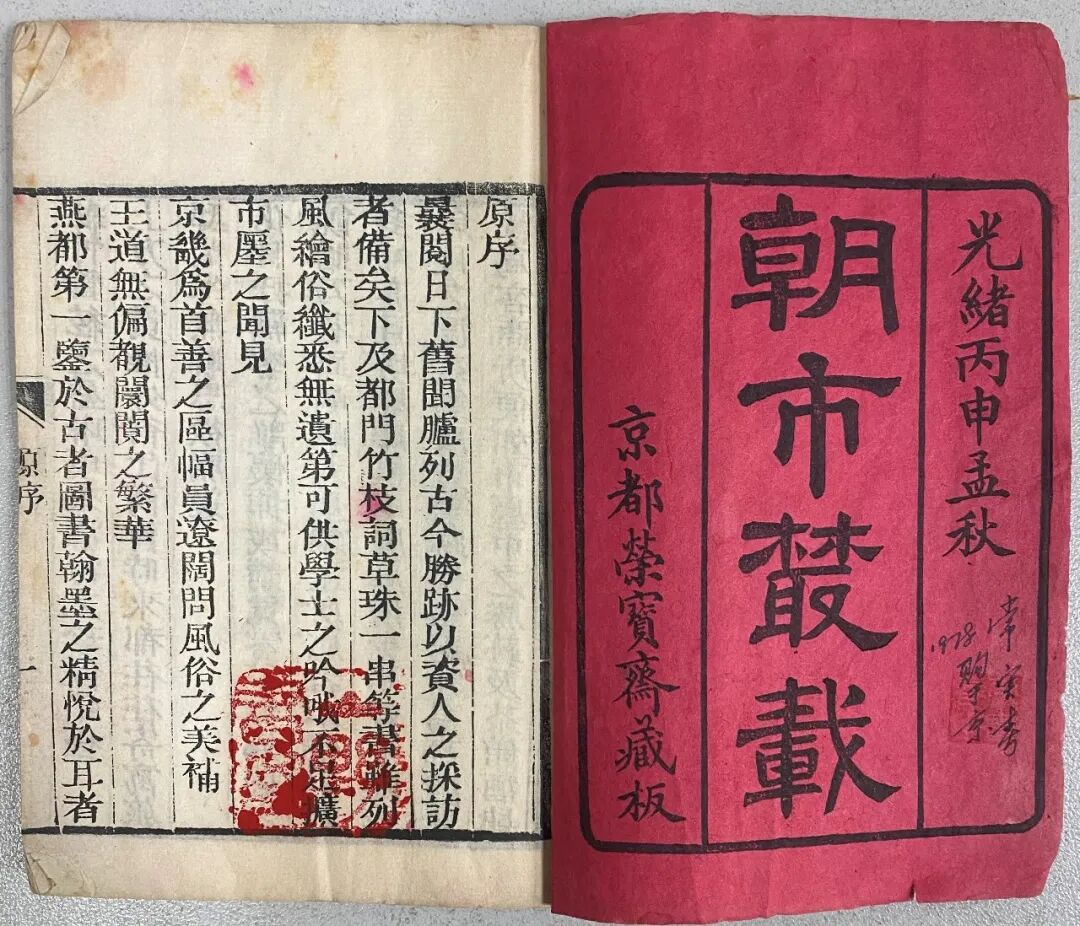 光緒丙申孟秋
朝市叢載
京都榮寶齋藏板
1978
原序
曩閱日下舊聞臚列古今勝跡以資人之採訪
者備矣下及都門竹枝詞草珠一串等書雖列
風繪俗纖悉無遺第可供學士之吟哦不足擴
市廛之聞見
京畿為首善之區幅員遼闊問風俗之美補
王道無偏覩闤闠之繁華
燕都第一鑒於古者圖書翰墨之精悅於耳者
原序
一